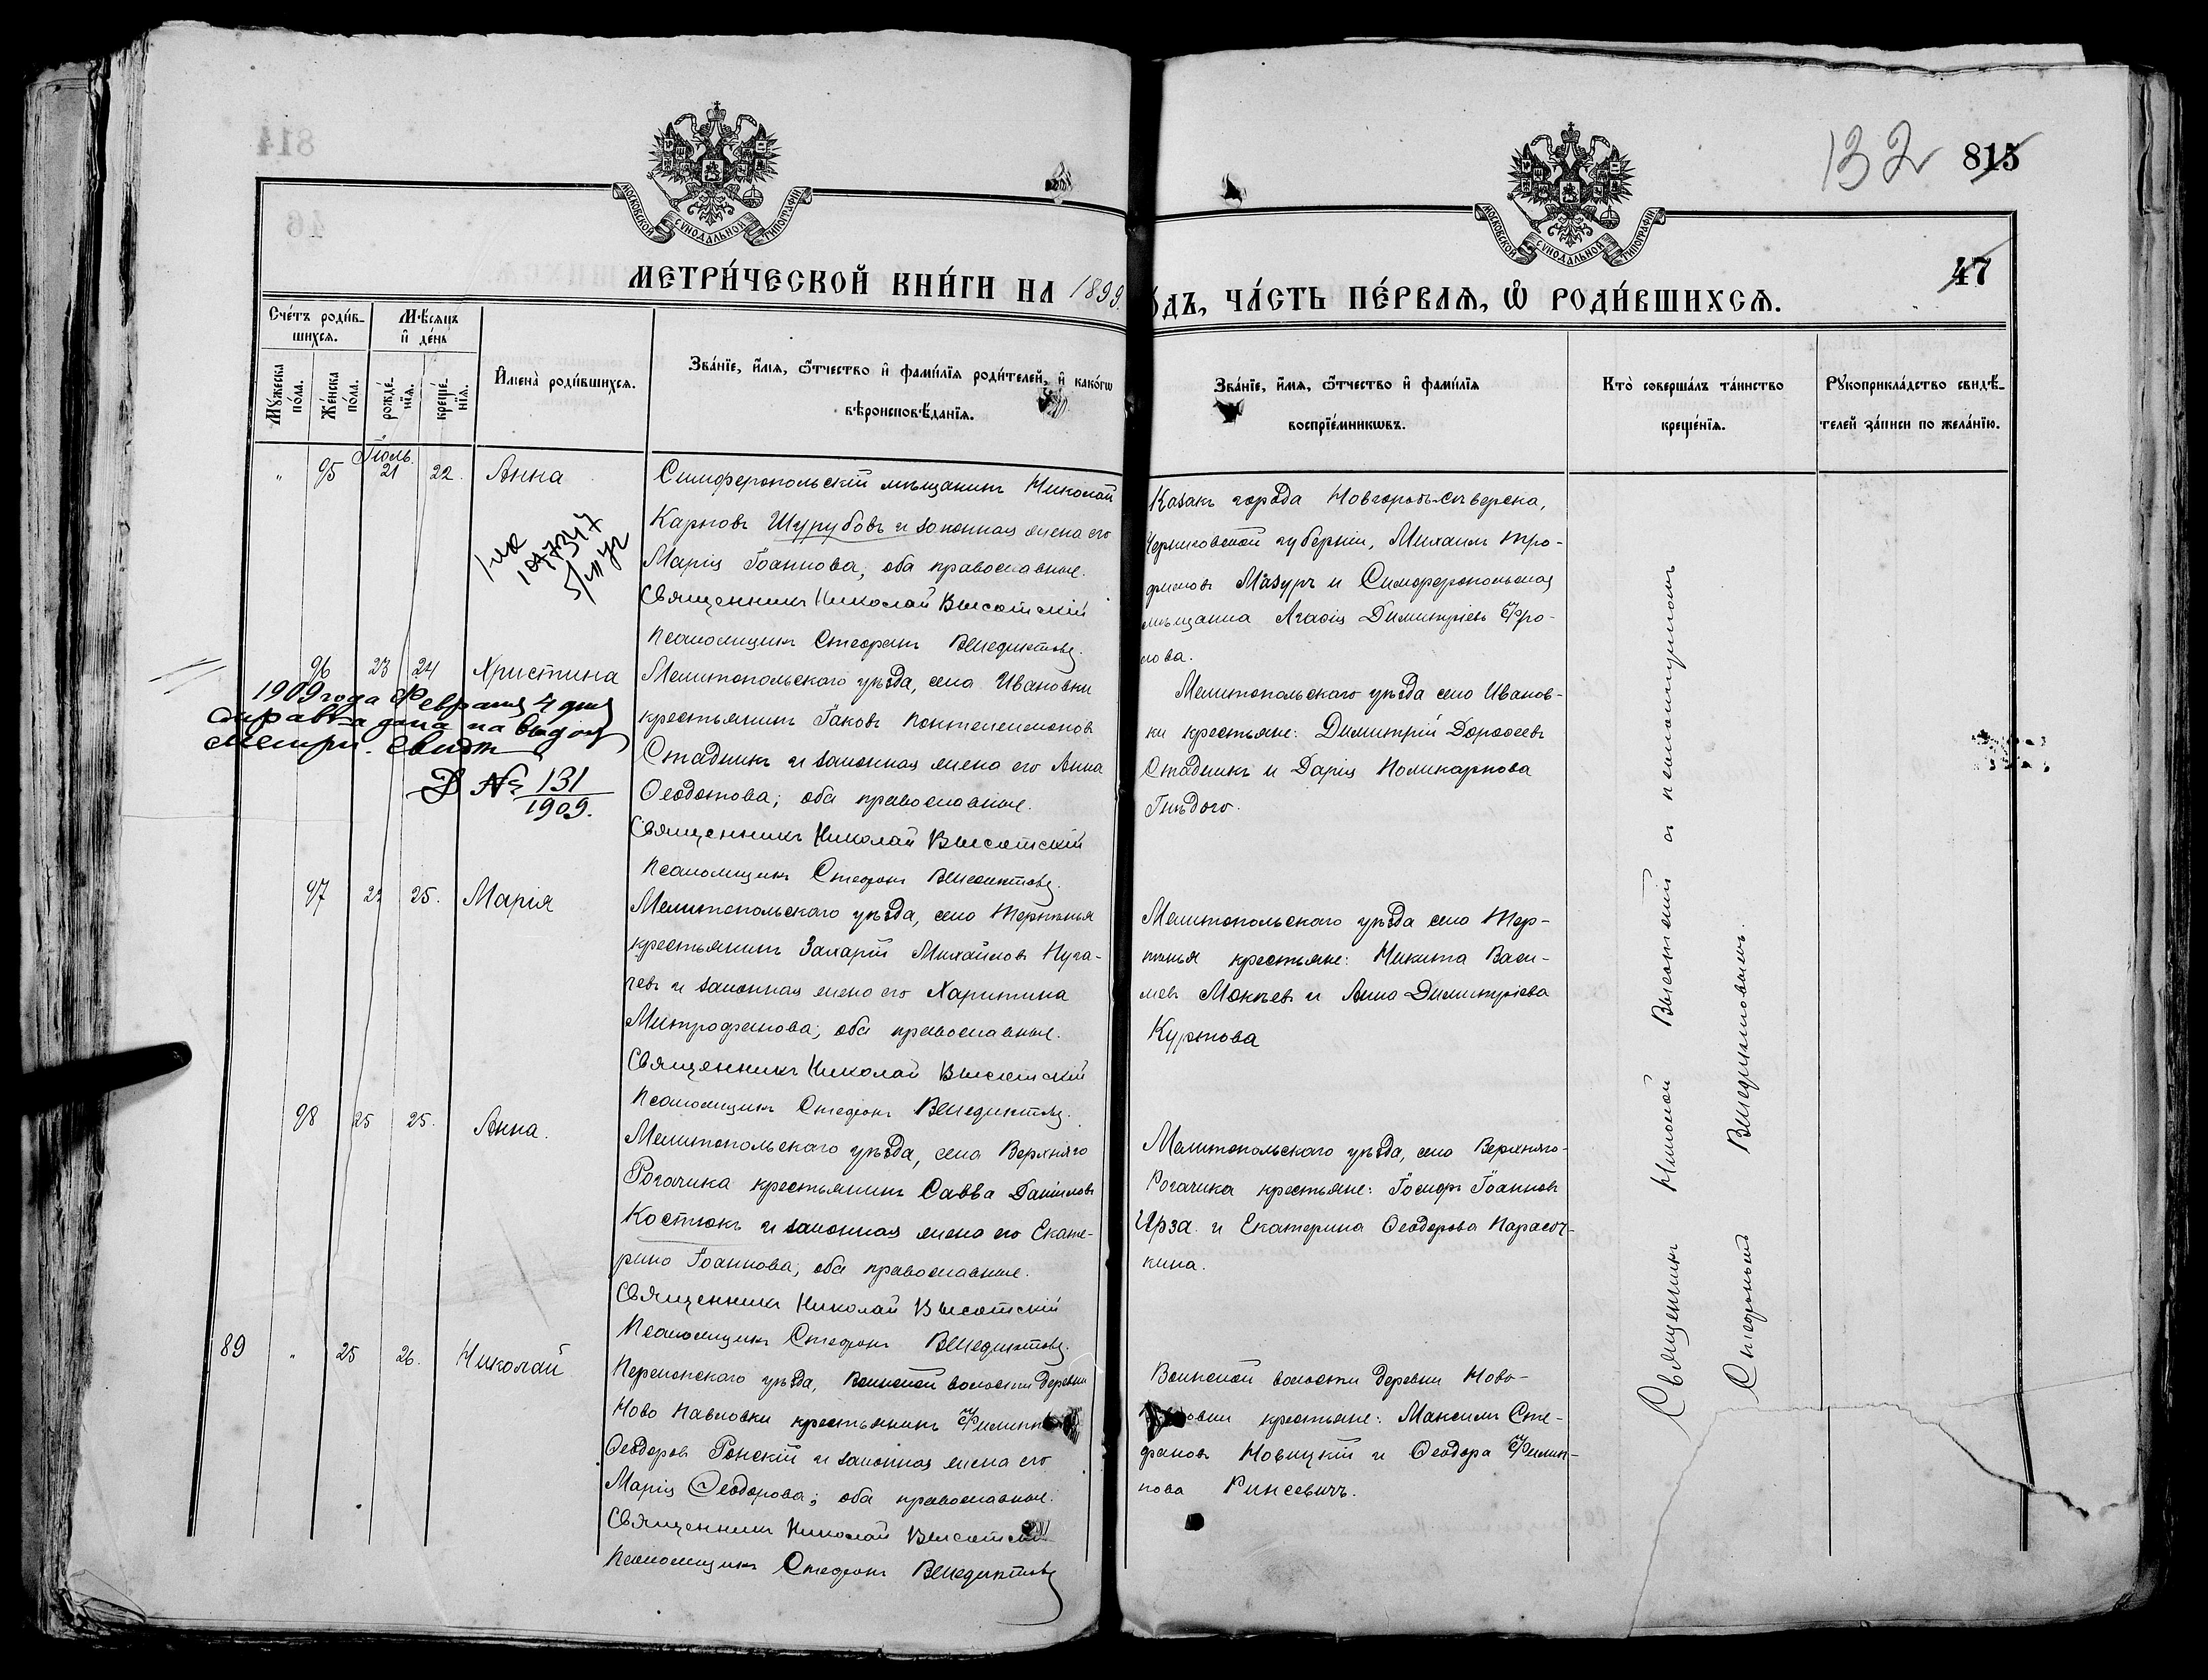 814
132 815
46
47
МОСКОВСКОЙ СѴНОДАЛЬНОЙ ТИПОГРАФІИ
МОСКОВСКОЙ СѴНОДАЛЬНОЙ ТИПОГРАФІИ
МЕТРИ́ЧЕСКОЙ КНИ́ГИ НА 1899
О́ДЪ, ЧА́СТЬ ПЕ́РВАѦ, Ѡ҆ РОДИ́ВШИХСѦ.
Сче́тъ роди́в-
шихсѧ.
Мꙋ́жеска
по́ла.
Же́нска
по́ла.
Мѣ́сяцъ
и҆ де́нь
рожде́-
нїѧ.
креще́-
нїѧ.
И҆мена̀ роди́вшихсѧ.
Зва́нїе, и҆́мѧ, ѻ҆́тчество и҆ фами́лїѧ роди́телей, и҆ како́гѡ
вѣроисповѣ́данїѧ.
Зва́нїе, и҆́мѧ, ѻ҆́тчество и҆ фами́лїѧ
воспрїе́мникѡвъ.
Кто̀ соверша́лъ та́инство
креще́нїѧ.
Рꙋкоприкла́дство свидѣ́-
телей за́писи по жела́нїю.
Іюль.
" 95 21 22. Анна
Симферопольскій мѣщанинъ Николай
Карповъ Шурубовъ и законная жена его
Марія Іоаннова, оба православные.
Священникъ Николай Высотскій
Псаломщикъ Стефанъ Венедиктовъ.
Казакъ города Новгородъ-Сѣверска,
Черниговской губерніи, Михаилъ Тро-
фимовъ Мазуръ и Симферопольская
мѣщанка Агаѳія Димитріева Фро-
лова.
96 23 24 Христина
1909 года Февраля 4 дня
справка дана на выдачу
метрич. свидѣт
№ 131
1909.
Мелитопольскаго уѣзда, села Ивановки
крестьянинъ Іаковъ Пантелеимоновъ
Стадникъ и законная жена его Анна
Ѳеодотова; оба православные.
Священникъ Николай Высотскій
Псаломщикъ Стефанъ Венедиктовъ.
Мелитопольскаго уѣзда села Иванов-
ки крестьяне: Димитрій Дороѳеевъ
Стадникъ и Дарія Поликарпова
Гнѣдого.
97 23 25. Марія
Мелитопольскаго уѣзда, села Терпѣнья
крестьянинъ Захарій Михайловъ Пуга-
чевъ и законная жена его Харитина
Митрофанова; оба православные.
Священникъ Николай Высотскій
Псаломщикъ Стефанъ Венедиктовъ.
Мелитопольскаго уѣзда села Тер-
пѣнья крестьяне: Никита Васи-
льевъ Мокѣевъ и Анна Димитріева
Курпова
98 25 25. Анна.
Мелитопольскаго уѣзда, села Верхняго
Рогачика крестьянинъ Савва Даніиловъ
Костюкъ и законная жена его Екате-
рина Іоаннова, оба православные.
Священникъ Николай Высотскій
Псаломщикъ Стефанъ Венедиктовъ.
Мелитопольскаго уѣзда, села Верхняго-
Рогачика крестьяне: Іосифъ Іоанновъ
Ирза и Екатерина Ѳеодорова Парасоч-
кина.
89 " 25 26. Николай
Перекопскаго уѣзда, Воинской волости деревни
Ново Павловки крестьянинъ Филиппъ
Ѳеодоровъ Ронскій и законная жена его
Марія Ѳеодорова; оба православные.
Священникъ Николай Высотскій
Псаломщикъ Стефанъ Венедиктовъ
Воинской волости деревни Ново-
крестьяне: Максимъ Сте-
фановъ Новицкій и Ѳеодора Филип-
пова Ринсевичъ.
Священникъ Николай Высотскій съ псаломщикомъ
Стефаномъ Венедиктовымъ.